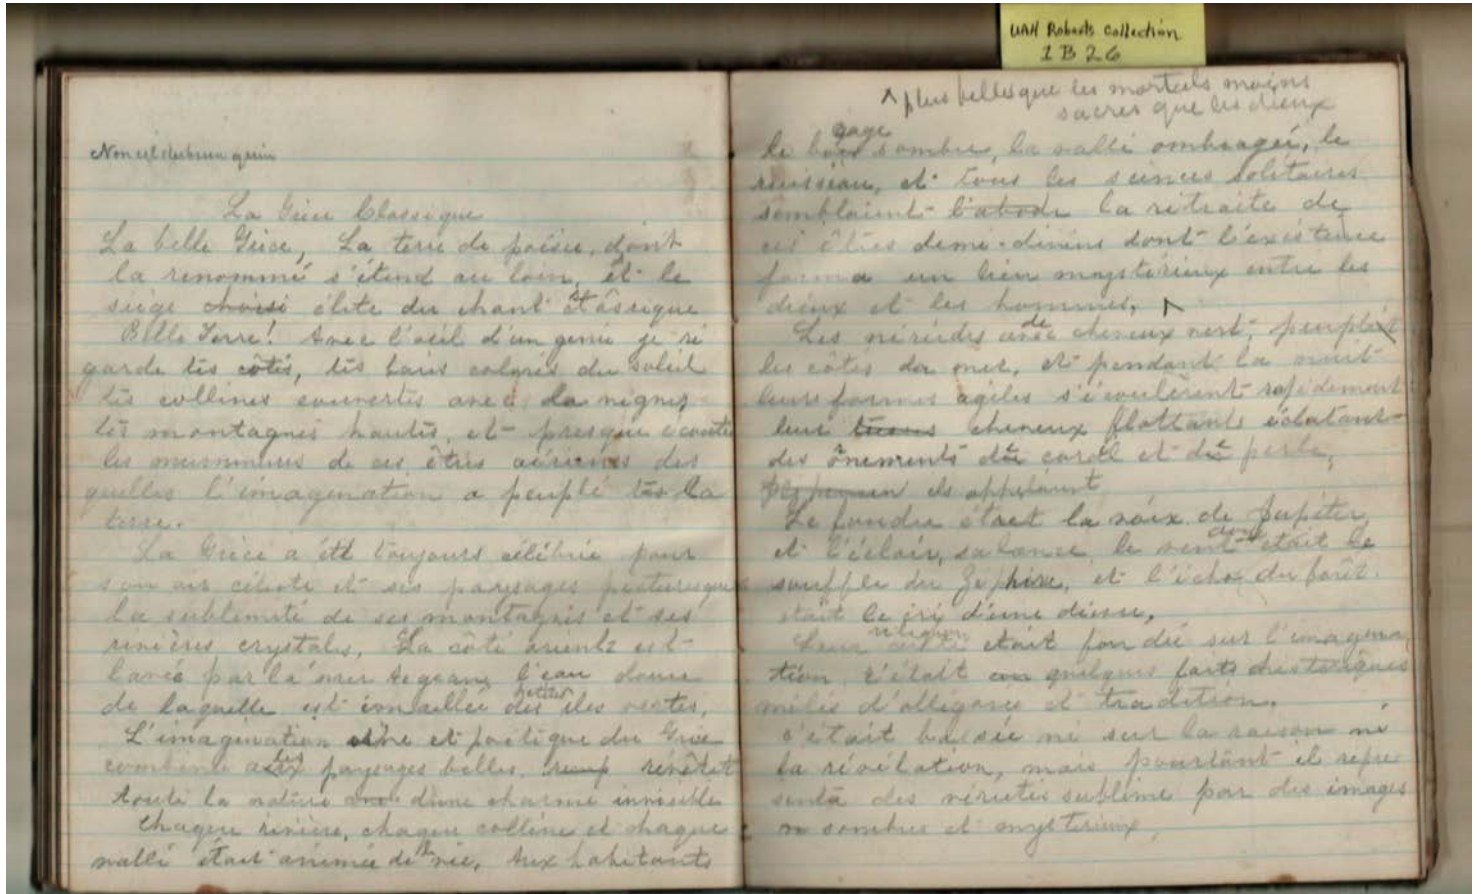 UAH Roberts Collection
1B26
La Grèce Classique
La belle Grèce, La terre de poésie, dont
la renommé s'étend au loin, et le
siège choisi élite du chant classique
Belle Terre! Avec l'oeil d'un genie je re
garde tes côtés, tes baies colorés du soleil
tes collines couvertes avec la vignes,
tes montagnes hautes, et presque écoute
les murmures de ces êtres aériens des
quelles l'imagination a peuplé la
terre.
La Grèce a été toujours célébrée pour
son air céleste et ses paysages pictoresque
la sublimité de ses montagnes et ses
rivières crystales. La côté orient est
lavée par la mer Aegean, l'eau
de laquelle est émaillée des iles vertes.
L'imagination et poetique du Grec
combine paysages belles. revêtit
toute la nature d'une charme invisible
Chaque rivière, chaque colline et chaque
vallé était animée de vie. Aux habitants
^ plus belles que les mortals moins
sacres que les dieux
le sombre, la vallé ombragée, le
ruisseau, et tous les scences solitaires
semblaient l'abode la retraite de
ces êtres demi-divins dont l'existence
forma un lien mystérieux entre les
dieux et les hommes. ^
Les néréides avec de cheveux vert, peuplait
les côtes da mer, et pendant la nuit
leurs formes agiles s'écoulèrent rapidement
leur cheveux flottants éclatant
des ornements de corâl et de perle,
ils appelaient
Le foudre était la voix de Jupiter,
et l'éclair, sa lance, le vent doux était le
souffle du Zephire, et l'écho du forêt
était le cri d'une diesse,
Leur religion était fondée sur l'imagina
tion, c'était quelques faits historiques
mêlés d'allegorie et tradition.
c'était baisée ni sur la raison ni
la révélation, mais pourtant il repre
senta des vérités sublime par des images
sombre et mysterieux,